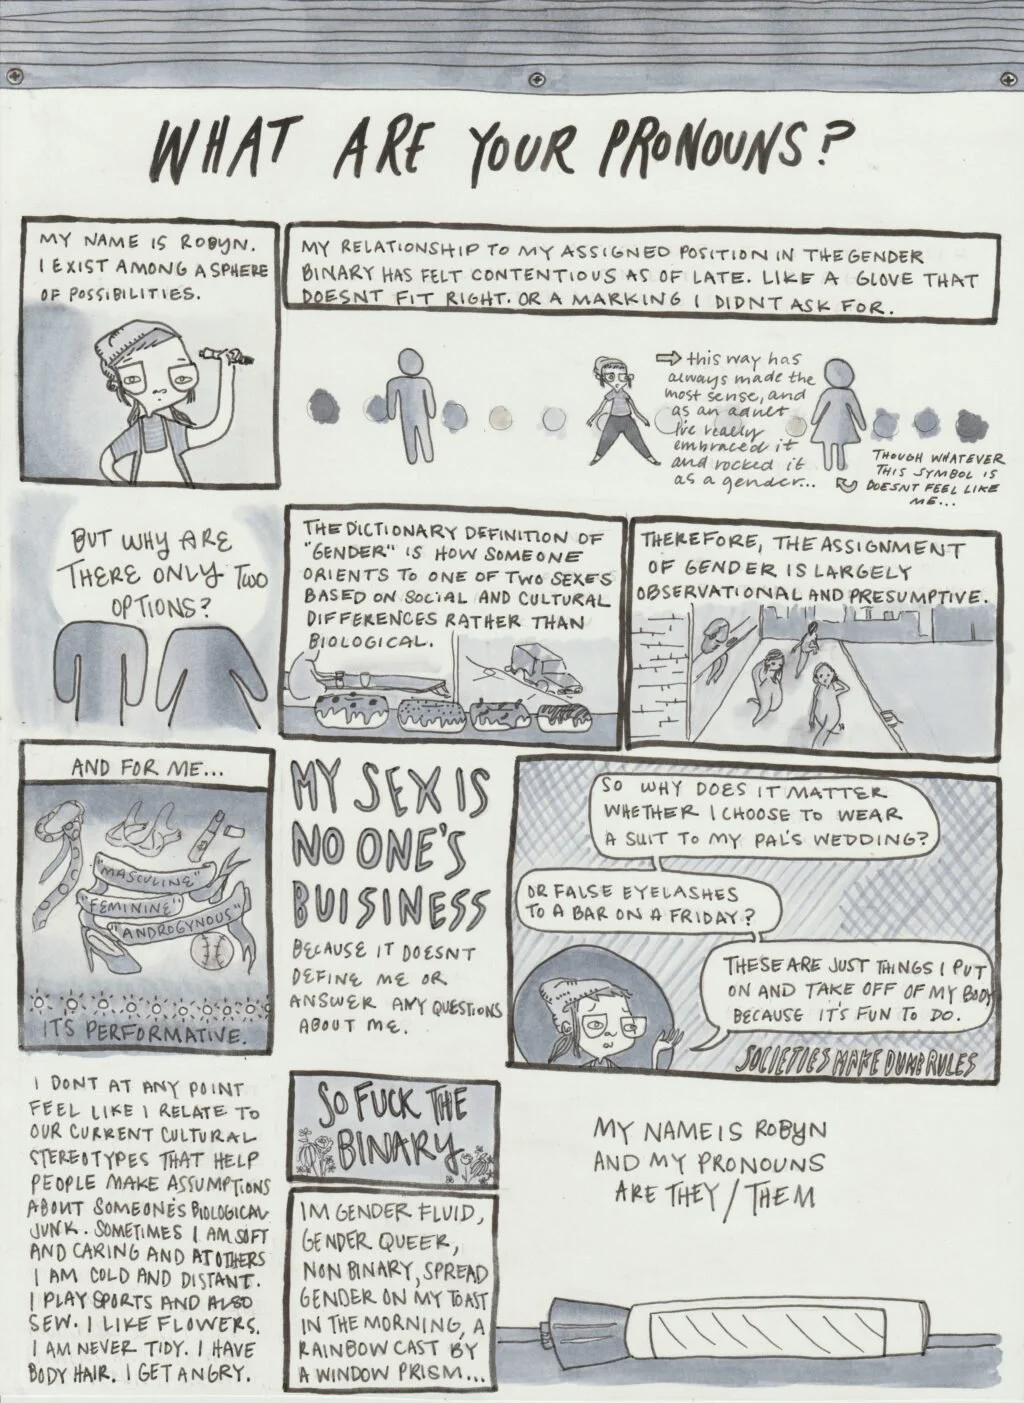 WHAT ARE YOUR PRONOUNS?
MY NAME IS ROBYN.
I EXIST AMONG A SPHERE
OF POSSIBILITIES.
MY RELATIONSHIP TO MY ASSIGNED POSITION IN THE GENDER
BINARY HAS FELT CONTENTIOUS AS OF LATE. LIKE A GLOVE THAT
DOESNT FIT RIGHT. OR A MARKING I DIDNT ASK FOR.
this way has
always made the
most sense, and
as an adult
I've really
embraced it
and rocked it
as a gender...
THOUGH WHATEVER
THIS SYMBOL IS
DOESNT FEEL LIKE
ME...
BUT WHY ARE
THERE ONLY TWO
OPTIONS?
THE DICTIONARY DEFINITION OF
"GENDER" IS HOW SOMEONE
ORIENTS TO ONE OF TWO SEXES
BASED ON SOCIAL AND CULTURAL
DIFFERENCES RATHER THAN
BIOLOGICAL.
THEREFORE, THE ASSIGNMENT
OF GENDER IS LARGELY
OBSERVATIONAL AND PRESUMPTIVE.
AND FOR ME...
"MASCULINE"
"FEMININE"
"ANDROGYNOUS"
IT'S PERFORMATIVE.
MY SEX IS
NO ONE'S
BUISINESS
BECAUSE IT DOESNT
DEFINE ME OR
ANSWER ANY QUESTIONS
ABOUT ME.
SO WHY DOES IT MATTER
WHETHER I CHOOSE TO WEAR
A SUIT TO MY PAL'S WEDDING?
OR FALSE EYELASHES
TO A BAR ON A FRIDAY?
THESE ARE JUST THINGS I PUT
ON AND TAKE OFF OF MY BODY
BECAUSE IT'S FUN TO DO.
SOCIETIES MAKE DUMB RULES
I DONT AT ANY POINT
FEEL LIKE I RELATE TO
OUR CURRENT CULTURAL
STEREOTYPES THAT HELP
PEOPLE MAKE ASSUMPTIONS
ABOUT SOMEONE'S BIOLOGICAL
JUNK. SOMETIMES I AM SOFT
AND CARING AND AT OTHERS
I AM COLD AND DISTANT.
I PLAY SPORTS AND ALSO
SEW. I LIKE FLOWERS.
I AM NEVER TIDY. I HAVE
BODY HAIR. I GET ANGRY.
SO FUCK THE
BINARY
IM GENDER FLUID,
GENDER QUEER,
NON BINARY, SPREAD
GENDER ON MY TOAST
IN THE MORNING, A
RAINBOW CAST BY
A WINDOW PRISM...
MY NAME IS ROBYN
AND MY PRONOUNS
ARE THEY/THEM